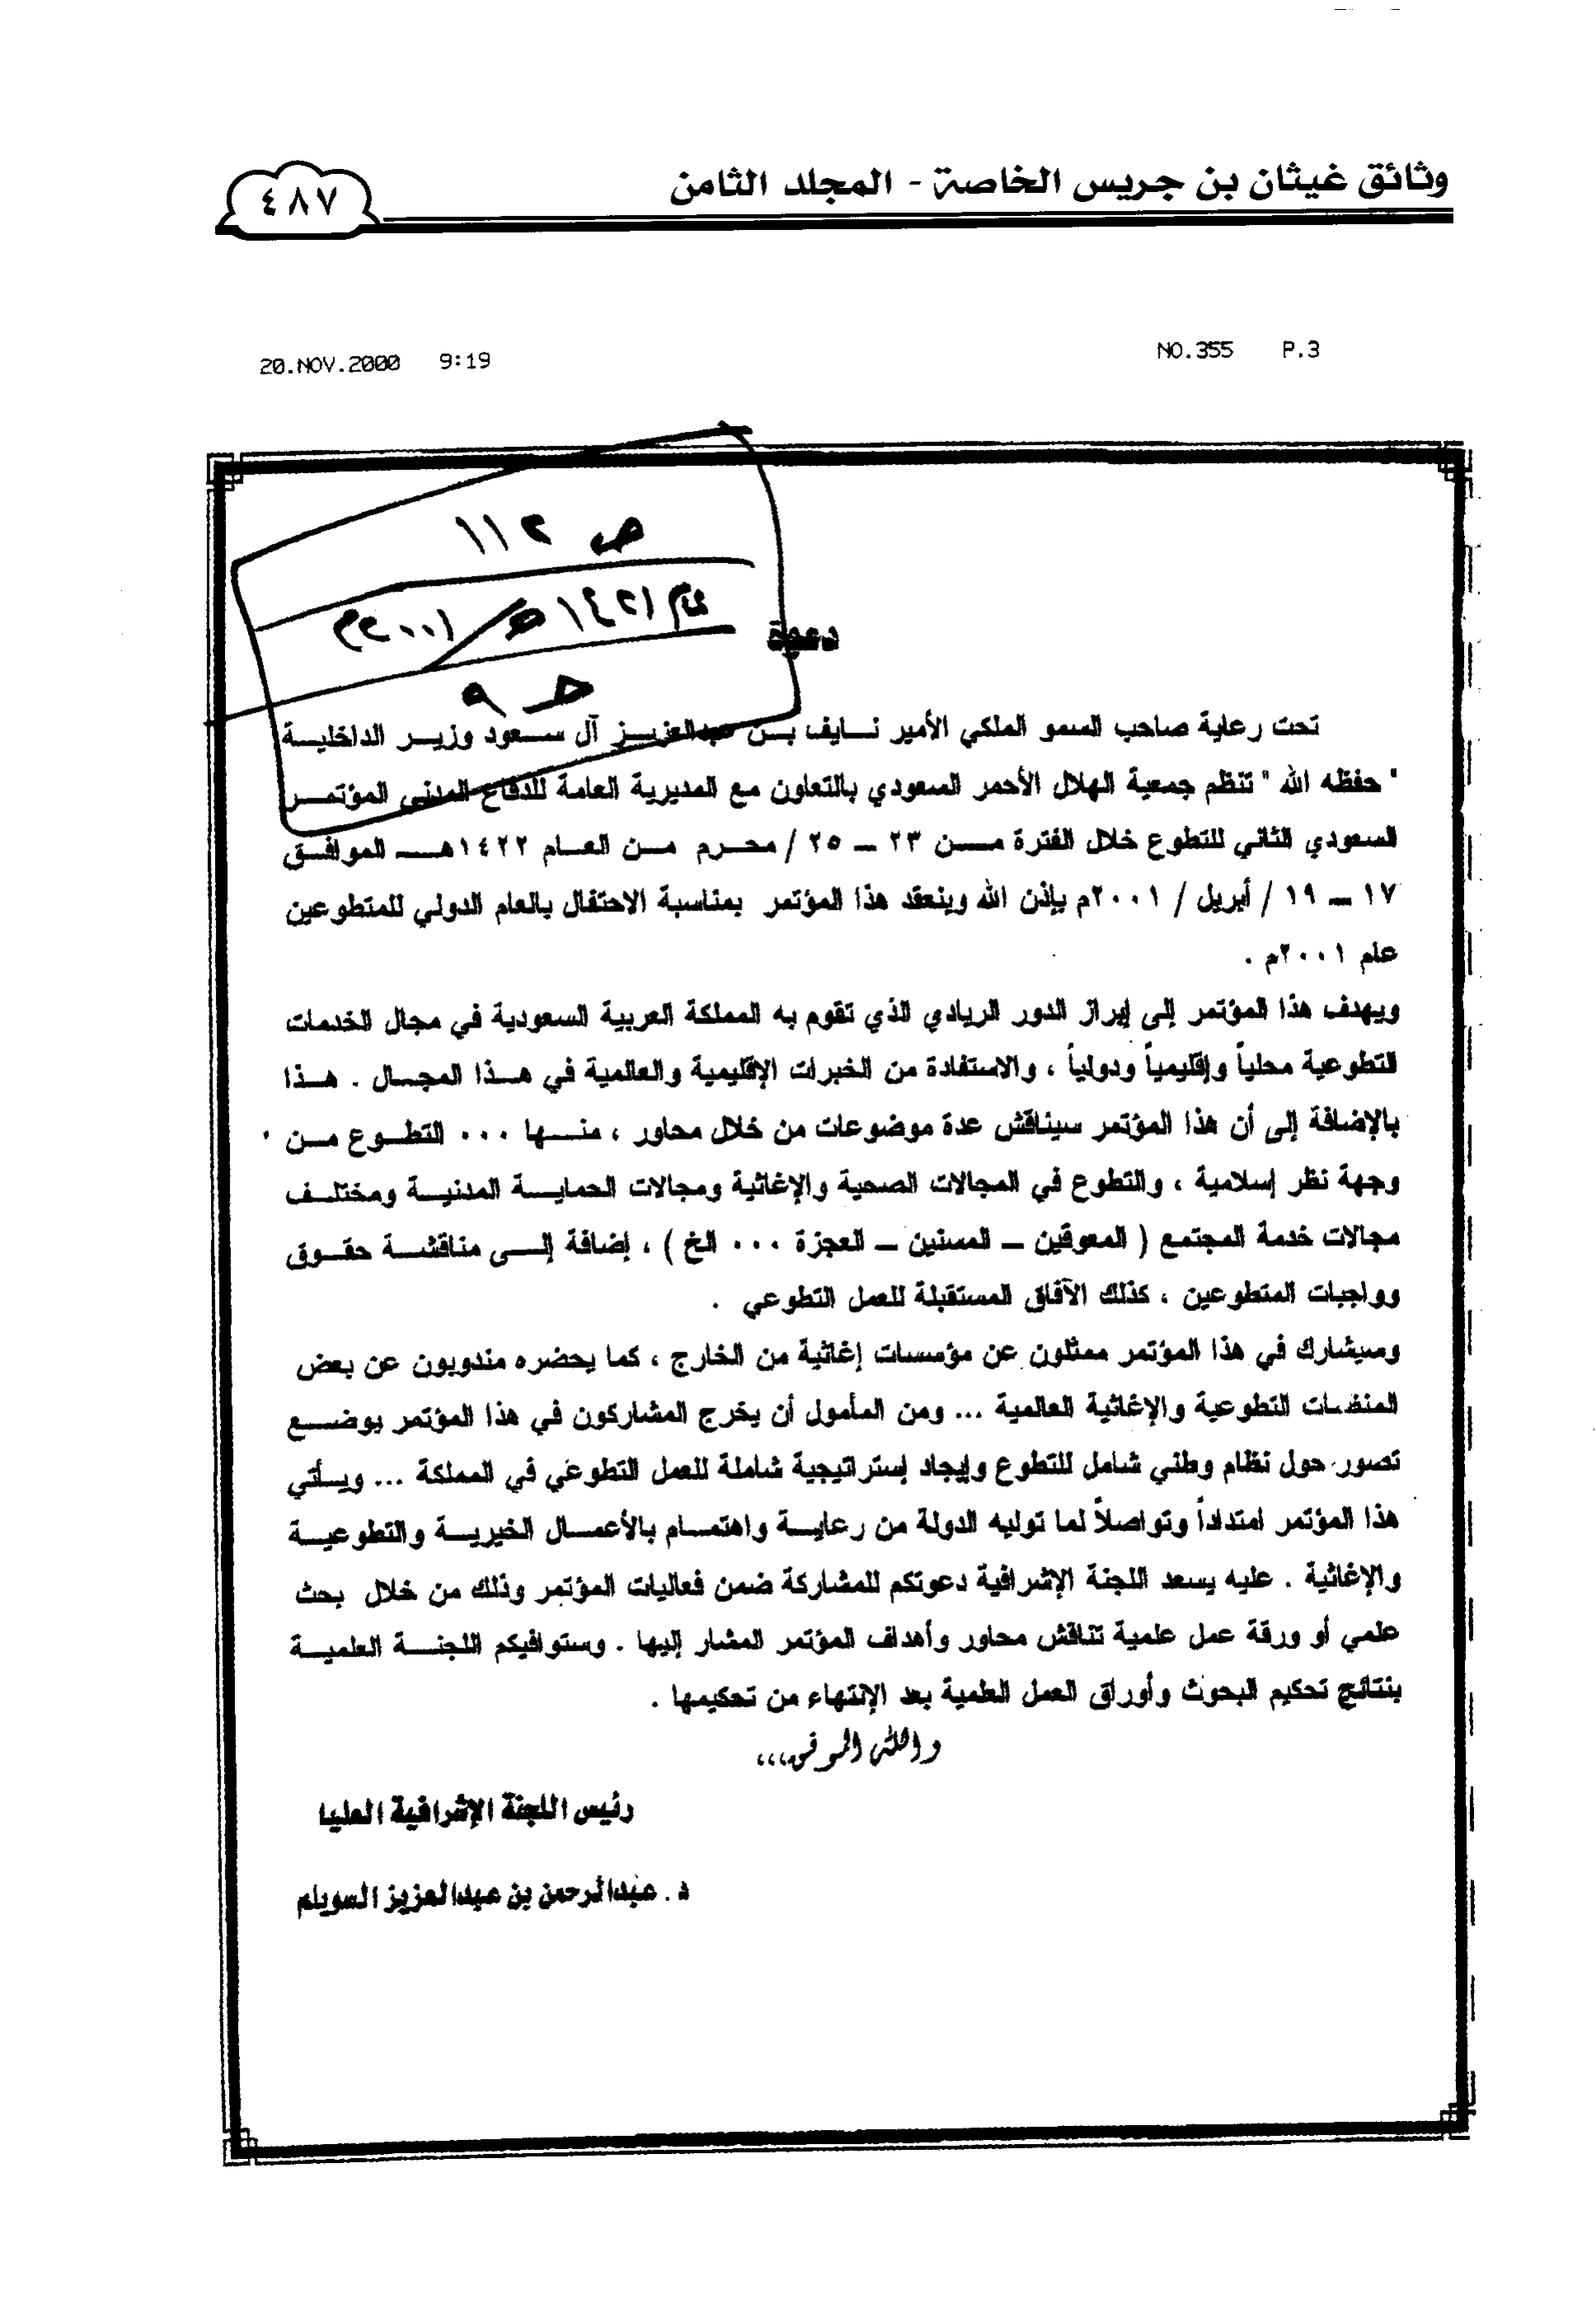 وثائق غيثان بن جريس الخاصة - المجلد الثامن
٤٨٧
20.NOV.2000 9:19 NO.355 P.3
ص ١١٢
عام ١٤٢١هـ/٢٠٠١م
حـ ٩
دعوة
تحت رعاية صاحب السمو الملكي الأمير نــايف بــن عبدالعزيــز آل ســعود وزيــر الداخليــة
" حفظه الله " تنظم جمعية الهلال الأحمر السعودي بالتعاون مع المديرية العامة للدفاع المدني المؤتمــر
السعودي الثاني للتطوع خلال الفترة مــن ٢٣ – ٢٥ / محــرم مــن العــام ١٤٢٢هــ الموافــق
١٧ – ١٩ / أبريل / ٢٠٠١م بإذن الله وينعقد هذا المؤتمر بمناسبة الاحتفال بالعام الدولي للمتطوعين
عام ٢٠٠١م .
ويهدف هذا المؤتمر إلى إبراز الدور الريادي الذي تقوم به المملكة العربية السعودية في مجال الخدمات
التطوعية محلياً وإقليمياً ودولياً ، والاستفادة من الخبرات الإقليمية والعالمية في هــذا المجــال . هــذا
بالإضافة إلى أن هذا المؤتمر سيناقش عدة موضوعات من خلال محاور ، منــها ٠٠٠ التطــوع مــن
وجهة نظر إسلامية ، والتطوع في المجالات الصحية والإغاثية ومجالات الحمايــة المدنيــة ومختلــف
مجالات خدمة المجتمع ( المعوقين – المسنين – العجزة ٠٠٠ الخ ) ، إضافة إلــى مناقشــة حقــوق
وواجبات المتطوعين ، كذلك الآفاق المستقبلة للعمل التطوعي .
وسيشارك في هذا المؤتمر ممثلون عن مؤسسات إغاثية من الخارج ، كما يحضره مندوبون عن بعض
المنظمات التطوعية والإغاثية العالمية ... ومن المأمول أن يخرج المشاركون في هذا المؤتمر بوضــع
تصور حول نظام وطني شامل للتطوع وإيجاد إستراتيجية شاملة للعمل التطوعي في المملكة ... ويــأتي
هذا المؤتمر امتداداً وتواصلاً لما توليه الدولة من رعايــة واهتمــام بالأعمــال الخيريــة والتطوعيــة
والإغاثية . عليه يسعد اللجنة الإشرافية دعوتكم للمشاركة ضمن فعاليات المؤتمر وذلك من خلال بحث
علمي أو ورقة عمل علمية تناقش محاور وأهداف المؤتمر المشار إليها . وستوافيكم اللجنــة العلميــة
بنتائج تحكيم البحوث وأوراق العمل العلمية بعد الإنتهاء من تحكيمها .
والله الموفق،،،
رئيس اللجنة الإشرافية العليا
د. عبدالرحمن بن عبدالعزيز السويلم